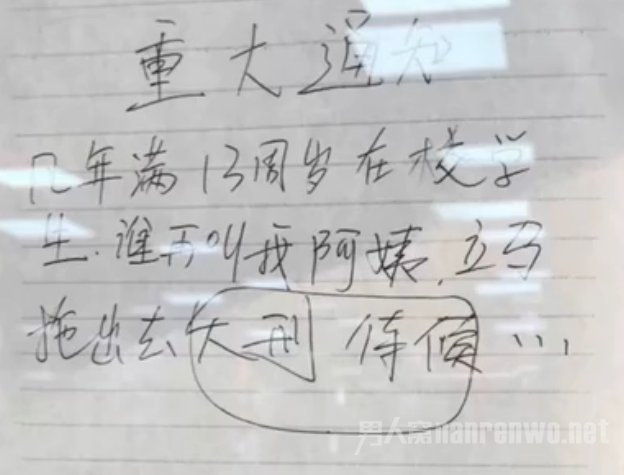 重大通知
凡年满13周岁在校学
生.谁再叫我阿姨,立马
拖出去大刑侍候...
男人窝nanrenwo.net